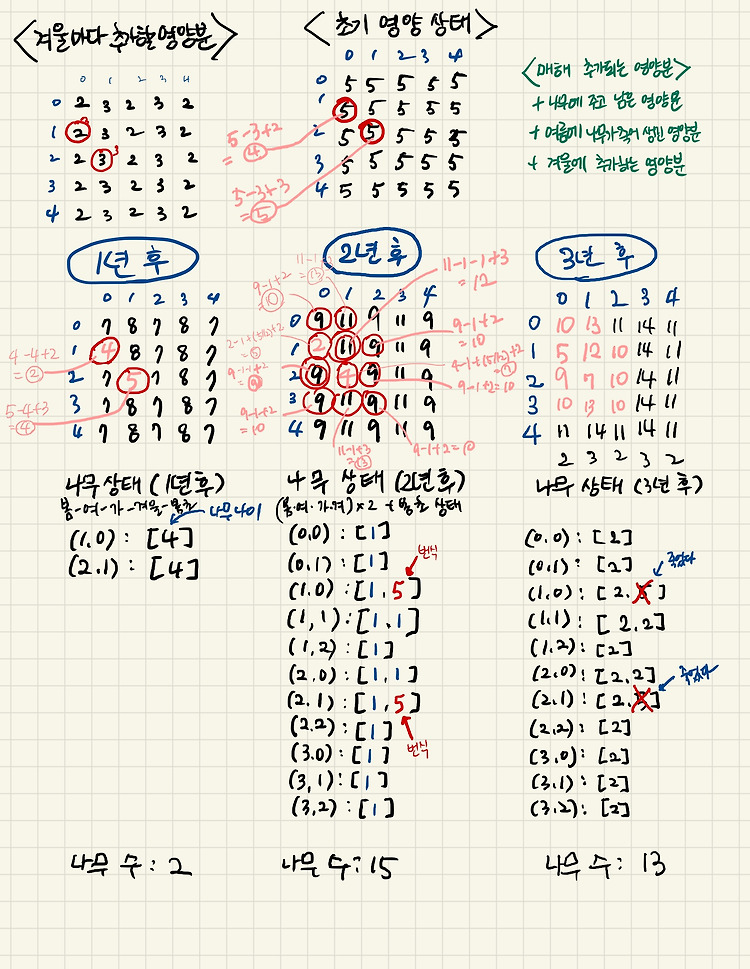 <겨울마다 추가할 영양분>
0 1 2 3 4
0 2 3 2 3 2
1 2 3 2 3 2
2 2 3 2 3 2
3 2 3 2 3 2
4 2 3 2 3 2
3
3
<초기 영양 상태>
0 1 2 3 4
0 5 5 5 5 5
1 5 5 5 5 5
2 5 5 5 5 5
3 5 5 5 5 5
4 5 5 5 5 5
5-3+2
= 4
5-3+3
= 5
<매해 추가되는 영양분>
+ 나무에 주고 남은 영양분
+ 여름에 나무가 죽어 생긴 영양분
+ 겨울에 추가하는 영양분
1년 후
0 1 2 3 4
0 7 8 7 8 7
1 4 8 7 8 7
2 7 5 7 8 7
3 7 8 7 8 7
4 7 8 7 8 7
4-4+2
= 2
5-4+3
= 4
2년 후
0 1 2 3 4
0 9 11 9 11 9
1 2 11 9 11 9
2 9 4 9 11 9
3 9 11 9 11 9
4 9 11 9 11 9
11-1+3
= 13
9-1+2
= 10
2-1+(5/2)+2
= 5
9-1-1+2
= 9
9-1+2
= 10
11-1+3
= 13
11-1-1+3
= 12
9-1+2
= 10
4-1+(5/2)+2
= 7
9-1+2=10
9-1+2=10
3년 후
0 1 2 3 4
0 10 13 11 14 11
1 5 12 10 14 11
2 9 7 10 14 11
3 10 13 10 14 11
4 11 14 11 14 11
2 3 2 3 2
나무 상태 (1년후)
봄-여-가-겨울-봄초
나무나이
(1,0) : [4]
(2,1) : [4]
나무 수 : 2
나무 상태 (2년후)
(봄·여·가·겨)×2 + 봄초 상태
(0,0) : [1]
(0,1) : [1]
번식
(1,0) : [1, 5]
(1,1) : [1,1]
(1,2) : [1]
(2,0) : [1,1]
(2,1) : [1, 5]
(2,2) : [1]
번식
(3,0) : [1]
(3,1) : [1]
(3,2) : [1]
나무 수 : 15
나무 상태 (3년 후)
(0,0) : [2]
(0,1) : [2]
죽었다
(1,0) : [2, 5]
(1,1) : [2,2]
(1,2) : [2]
(2,0) : [2,2]
죽었다
(2,1) : [2, 5]
(2,2) : [2]
(3,0) : [2]
(3,1) : [2]
(3,2) : [2]
나무 수 : 13